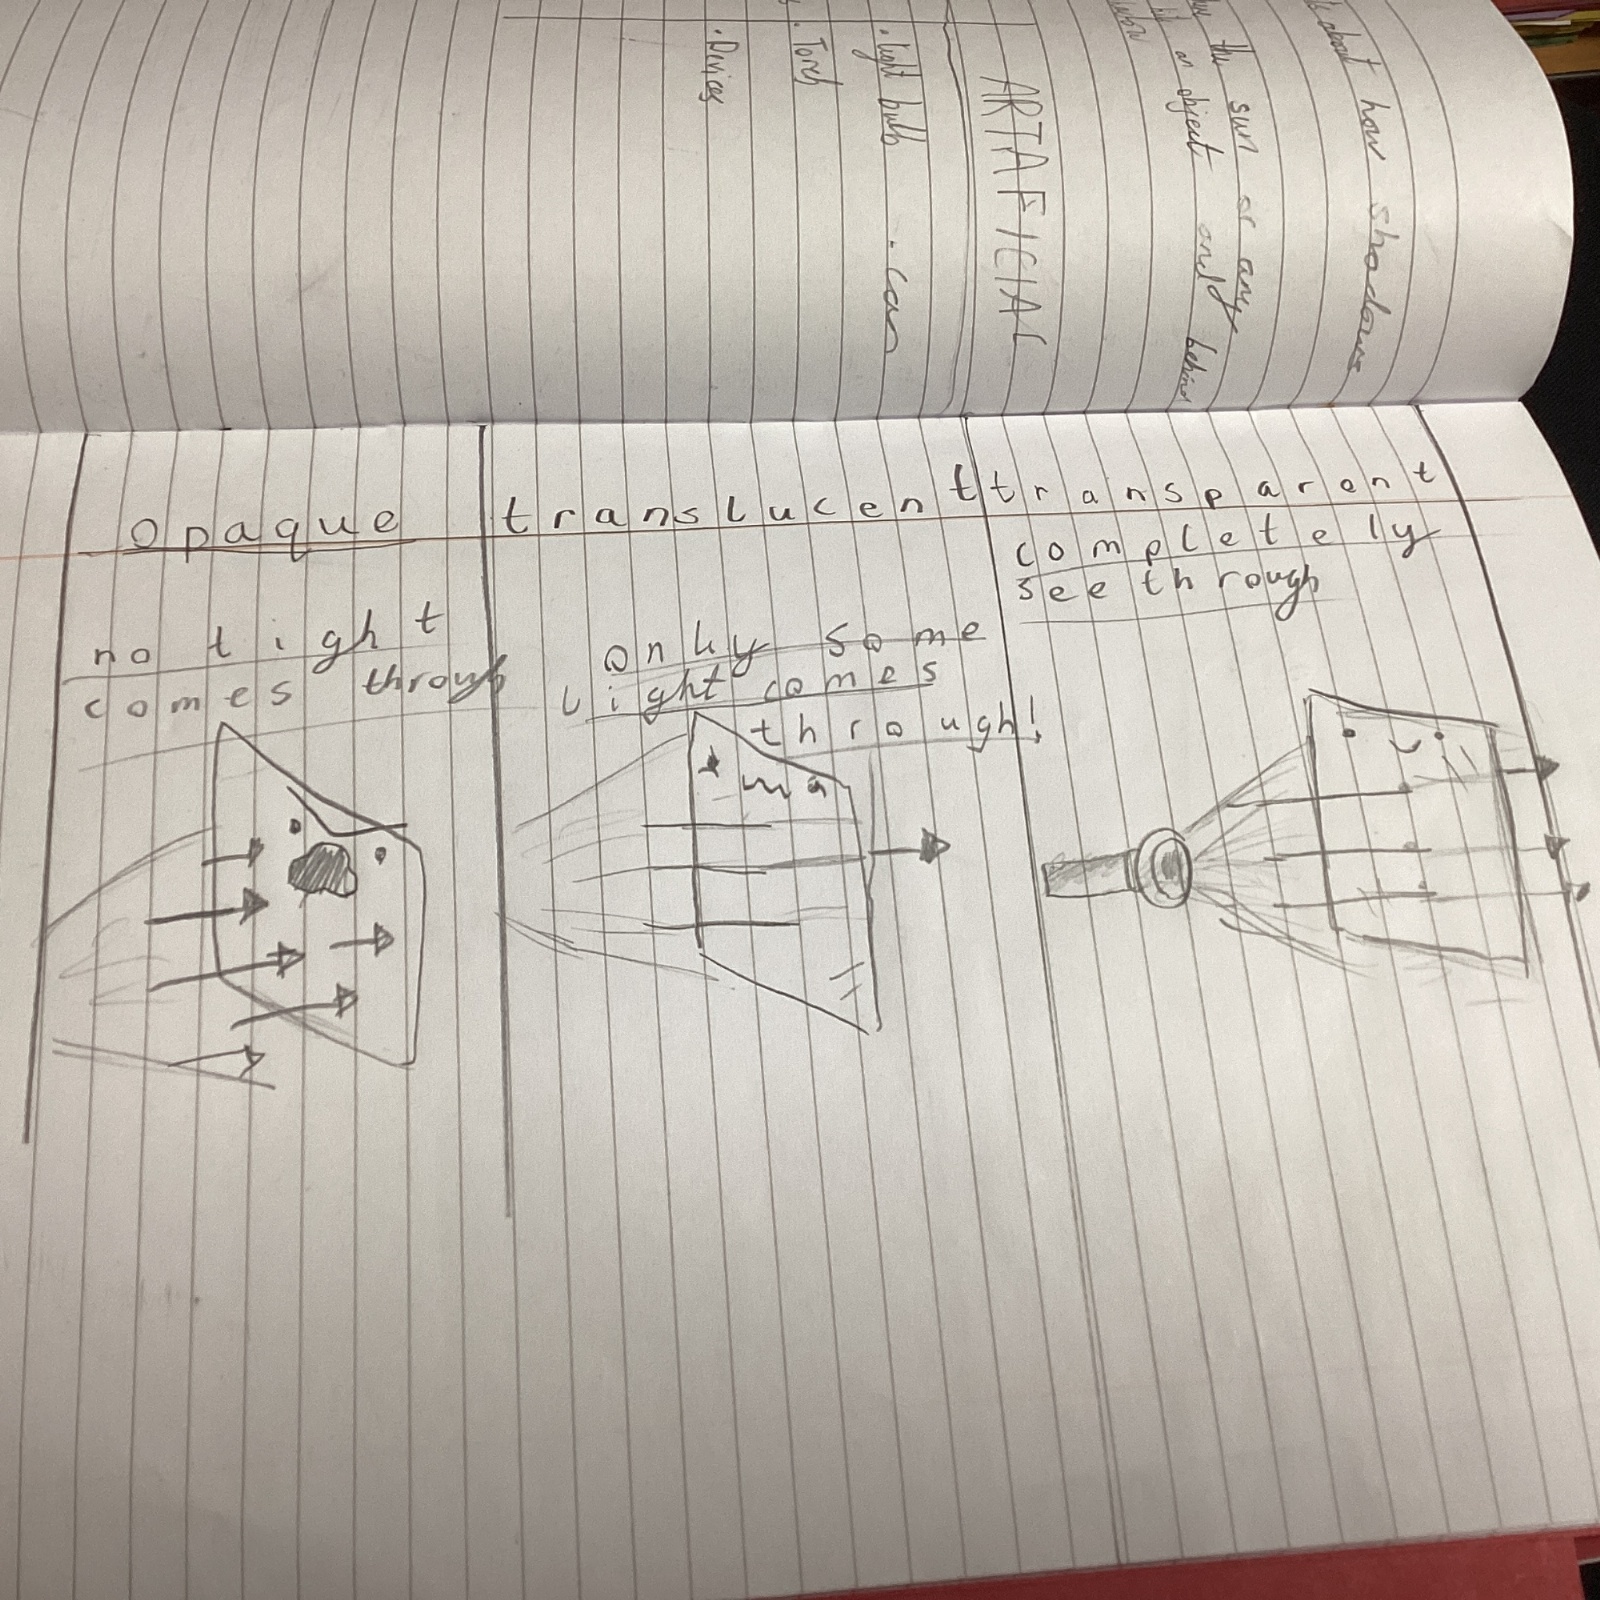 about how shadows
the sun or any
an object and behind
ARTAFICIAL
• light bulb • can
• Torch
• Divices
opaque
no light
comes through
translucent
only some
light comes
through!
transparent
completely
see through